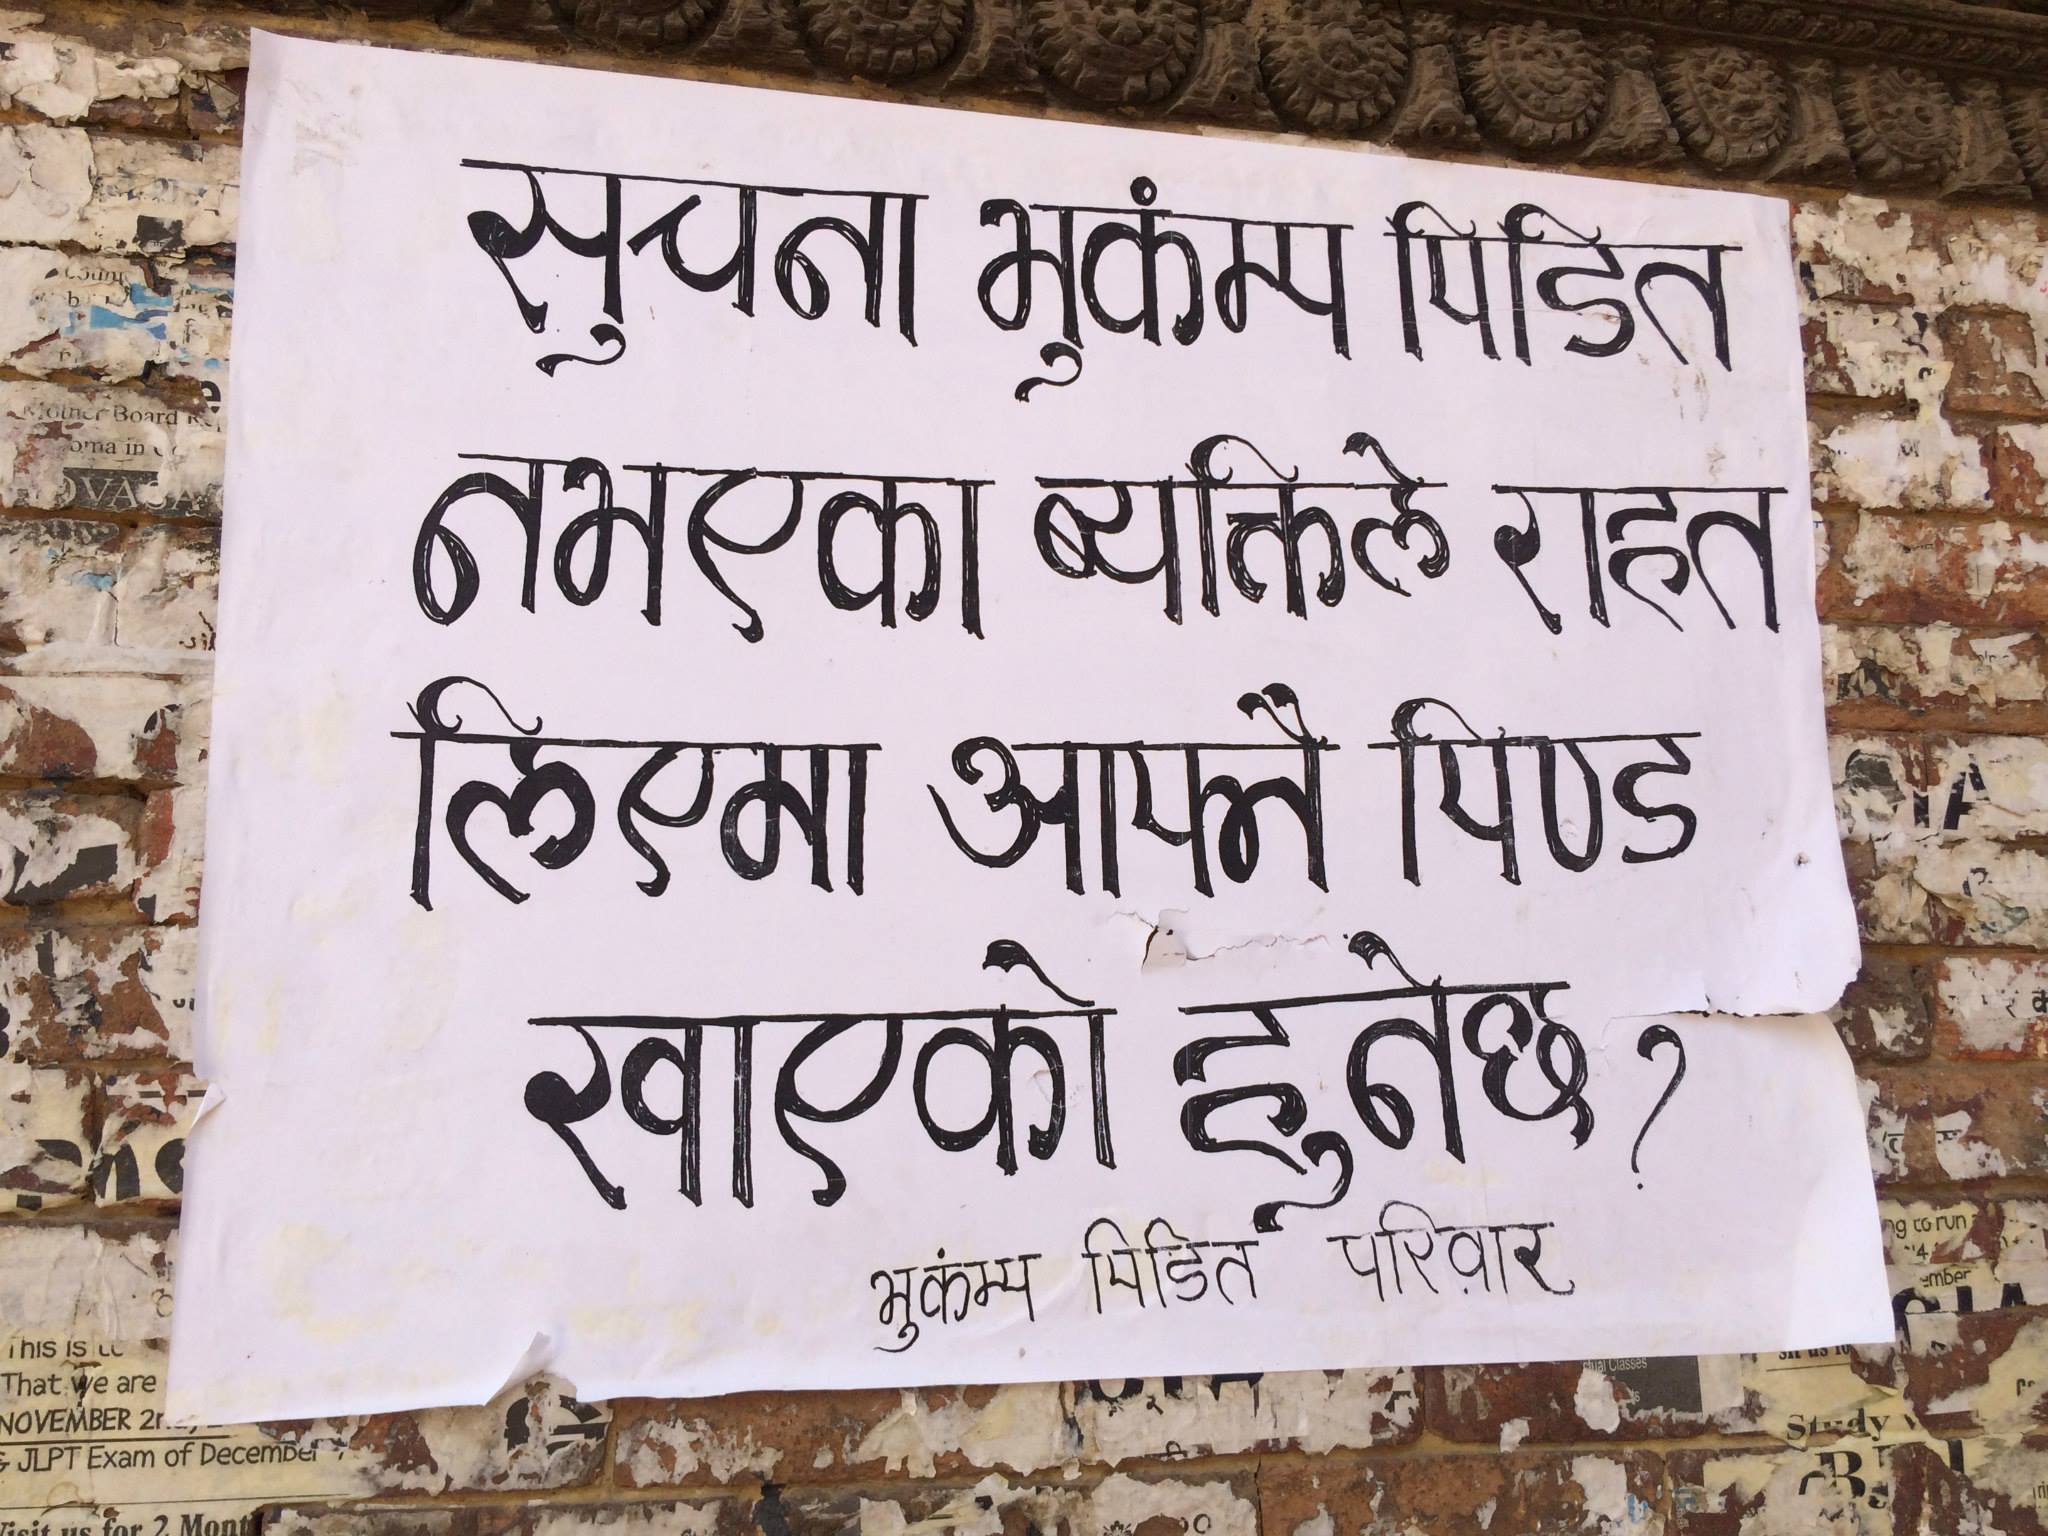 सुचना भुकंम्प पिडित
नभएका ब्यक्तिले राहत
लिएमा आफ्नै पिण्ड
खाएको हुनेछ?
भुकंम्प पिडित परिवार
Mother Board
oma in
This is
That we are
NOVEMBER 2nd,
& JLPT Exam of December
Visit us for 2 Mont
ng to run
ember
Study